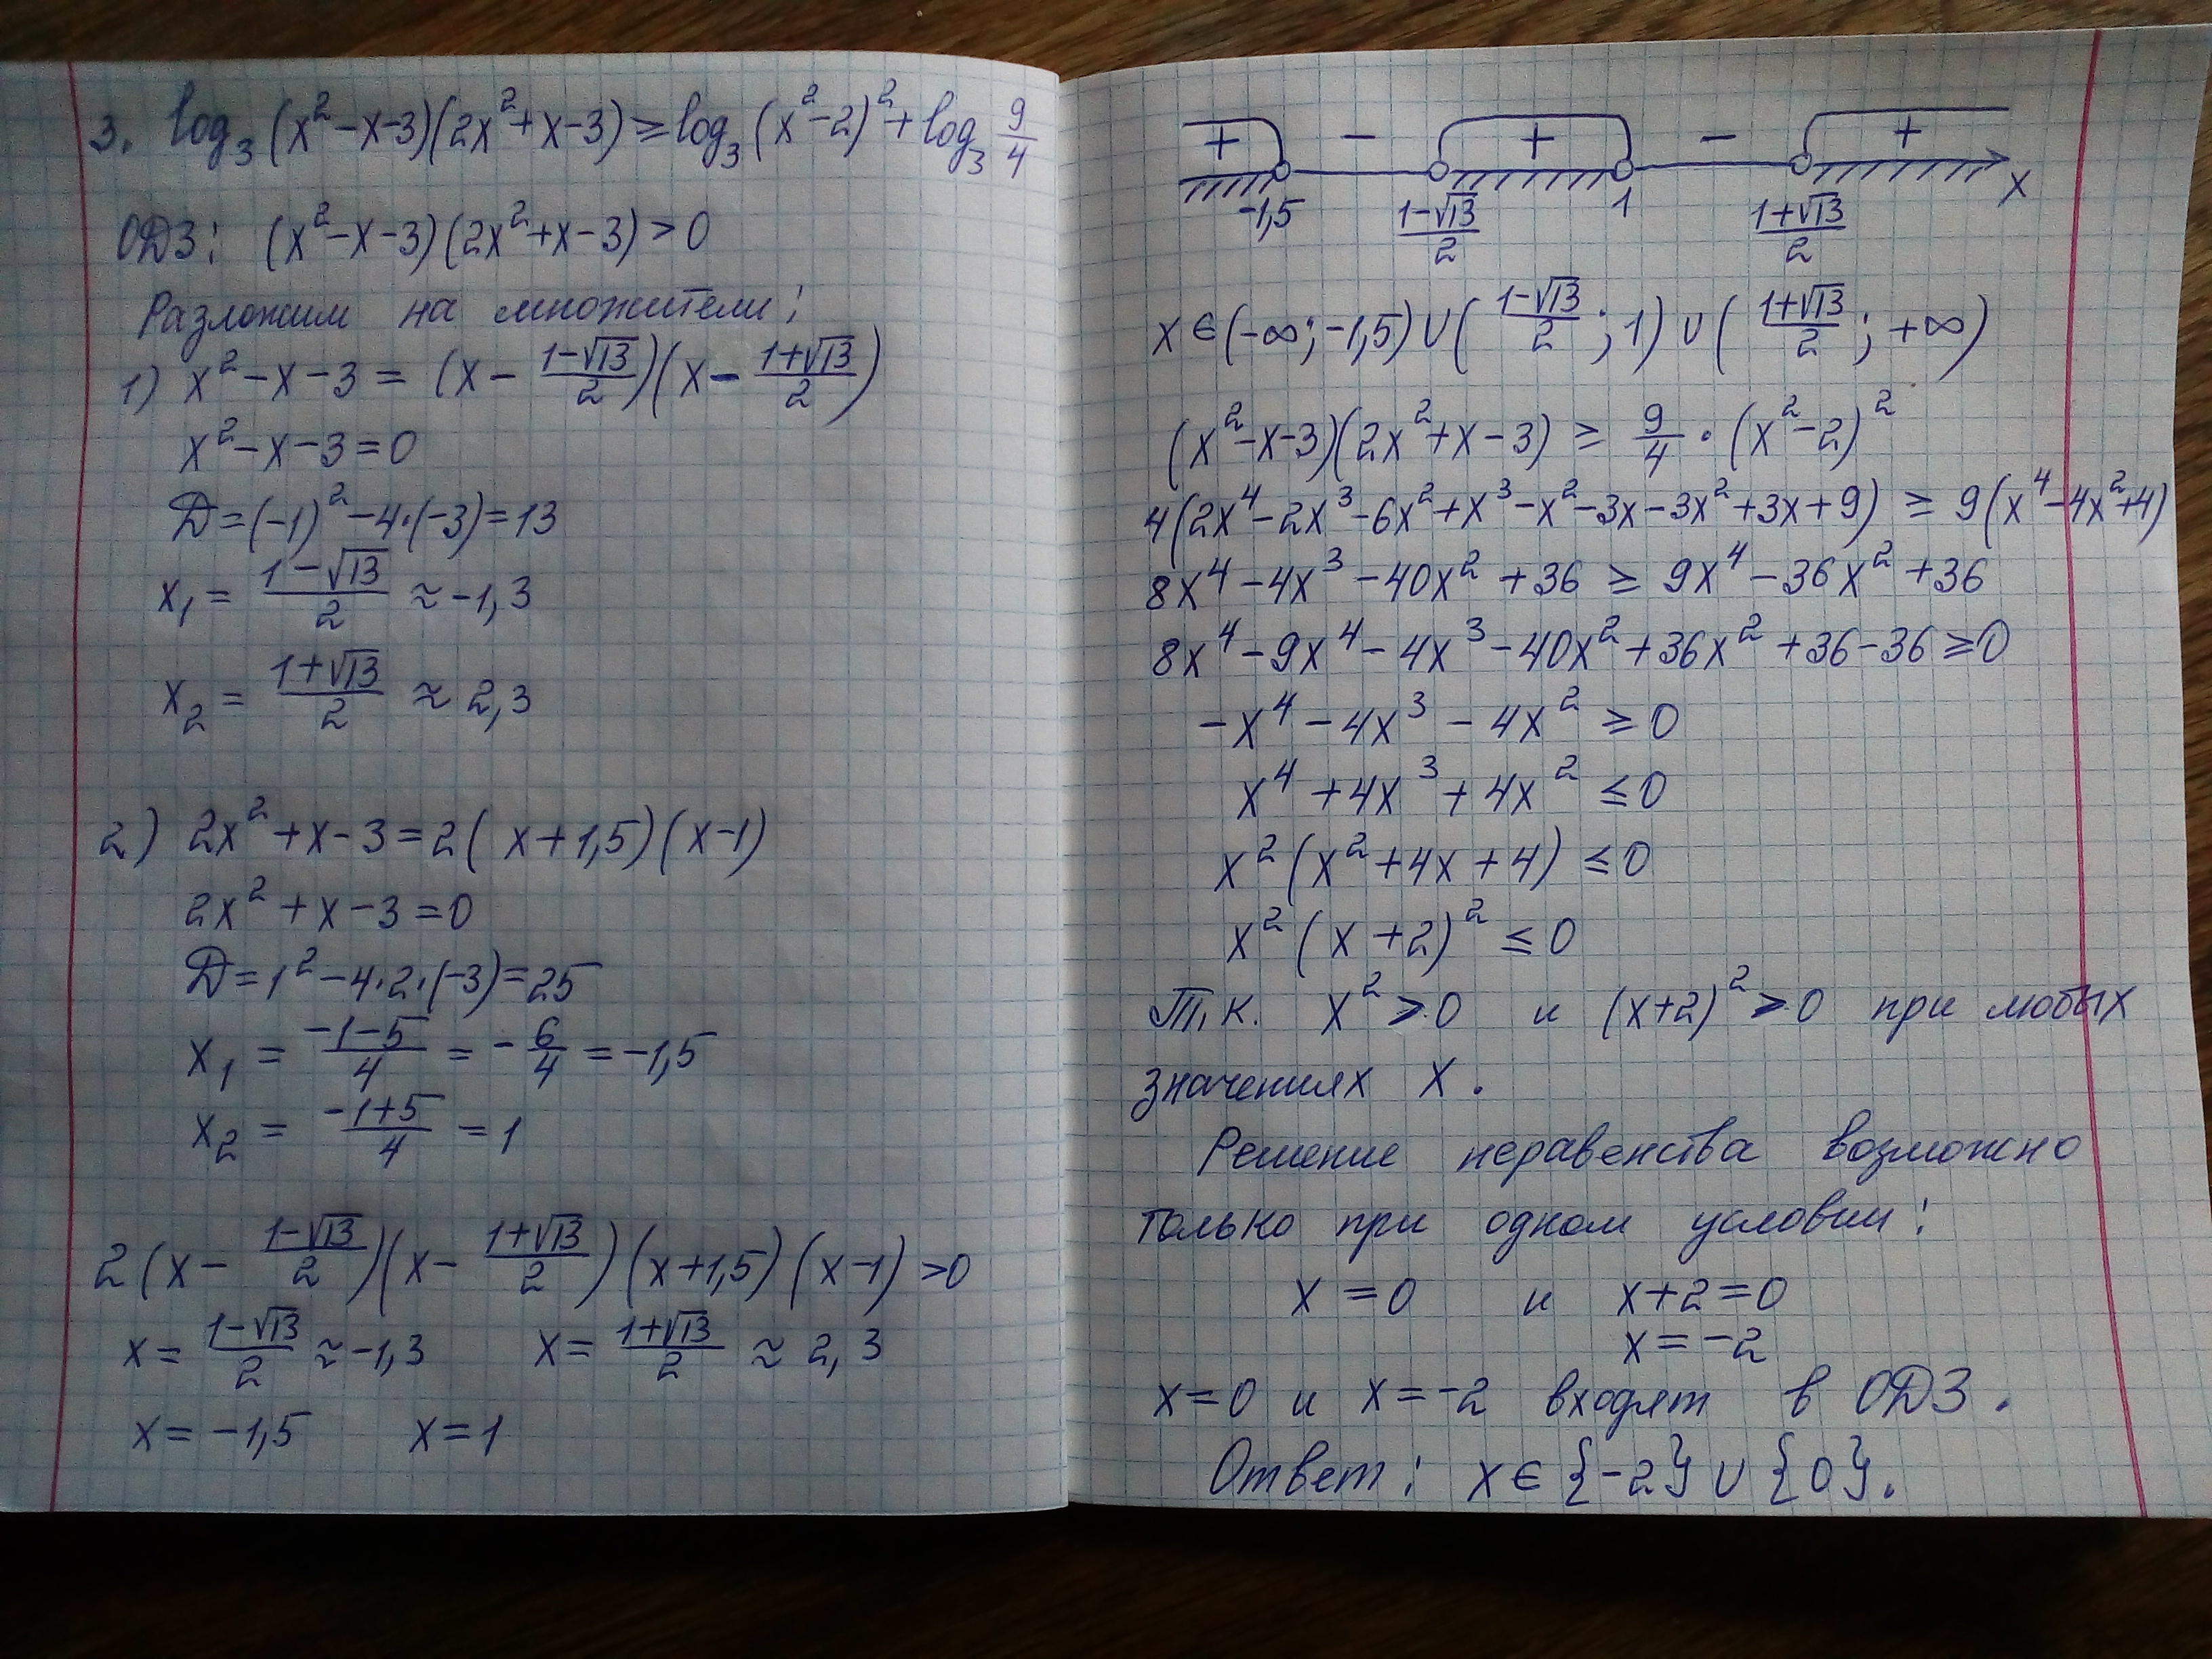 3. log₃(x²-x-3)(2x²+x-3) ≥ log₃(x²-2)² + log₃ 9/4
ОДЗ: (x²-x-3)(2x²+x-3) > 0
Разложим на множители:
1) x²-x-3 = (x - (1-√13)/2)(x - (1+√13)/2)
x²-x-3=0
D=(-1)²-4·(-3)=13
x₁ = (1-√13)/2 ≈ -1,3
x₂ = (1+√13)/2 ≈ 2,3
2) 2x²+x-3=2(x+1,5)(x-1)
2x²+x-3=0
D=1²-4·2·(-3)=25
x₁ = (-1-5)/4 = -6/4 = -1,5
x₂ = (-1+5)/4 = 1
2(x - (1-√13)/2)(x - (1+√13)/2)(x+1,5)(x-1) >0
x = (1-√13)/2 ≈ -1,3 x = (1+√13)/2 ≈ 2,3
x = -1,5 x = 1
+ - + - +
-1,5 (1-√13)/2 1 (1+√13)/2 x
x ∈ (-∞; -1,5) ∪ ((1-√13)/2; 1) ∪ ((1+√13)/2; +∞)
(x²-x-3)(2x²+x-3) ≥ 9/4 · (x²-2)²
4(2x⁴-2x³-6x²+x³-x²-3x-3x²+3x+9) ≥ 9(x⁴-4x²+4)
8x⁴-4x³-40x²+36 ≥ 9x⁴-36x²+36
8x⁴-9x⁴-4x³-40x²+36x²+36-36 ≥ 0
-x⁴-4x³-4x² ≥ 0
x⁴+4x³+4x² ≤ 0
x²(x²+4x+4) ≤ 0
x²(x+2)² ≤ 0
Т.к. x² ≥ 0 и (x+2)² ≥ 0 при любых
значениях x.
Решение неравенства возможно
только при одном условии:
x = 0 и x+2=0
x = -2
x=0 и x=-2 входят в ОДЗ.
Ответ: x ∈ {-2} ∪ {0}.